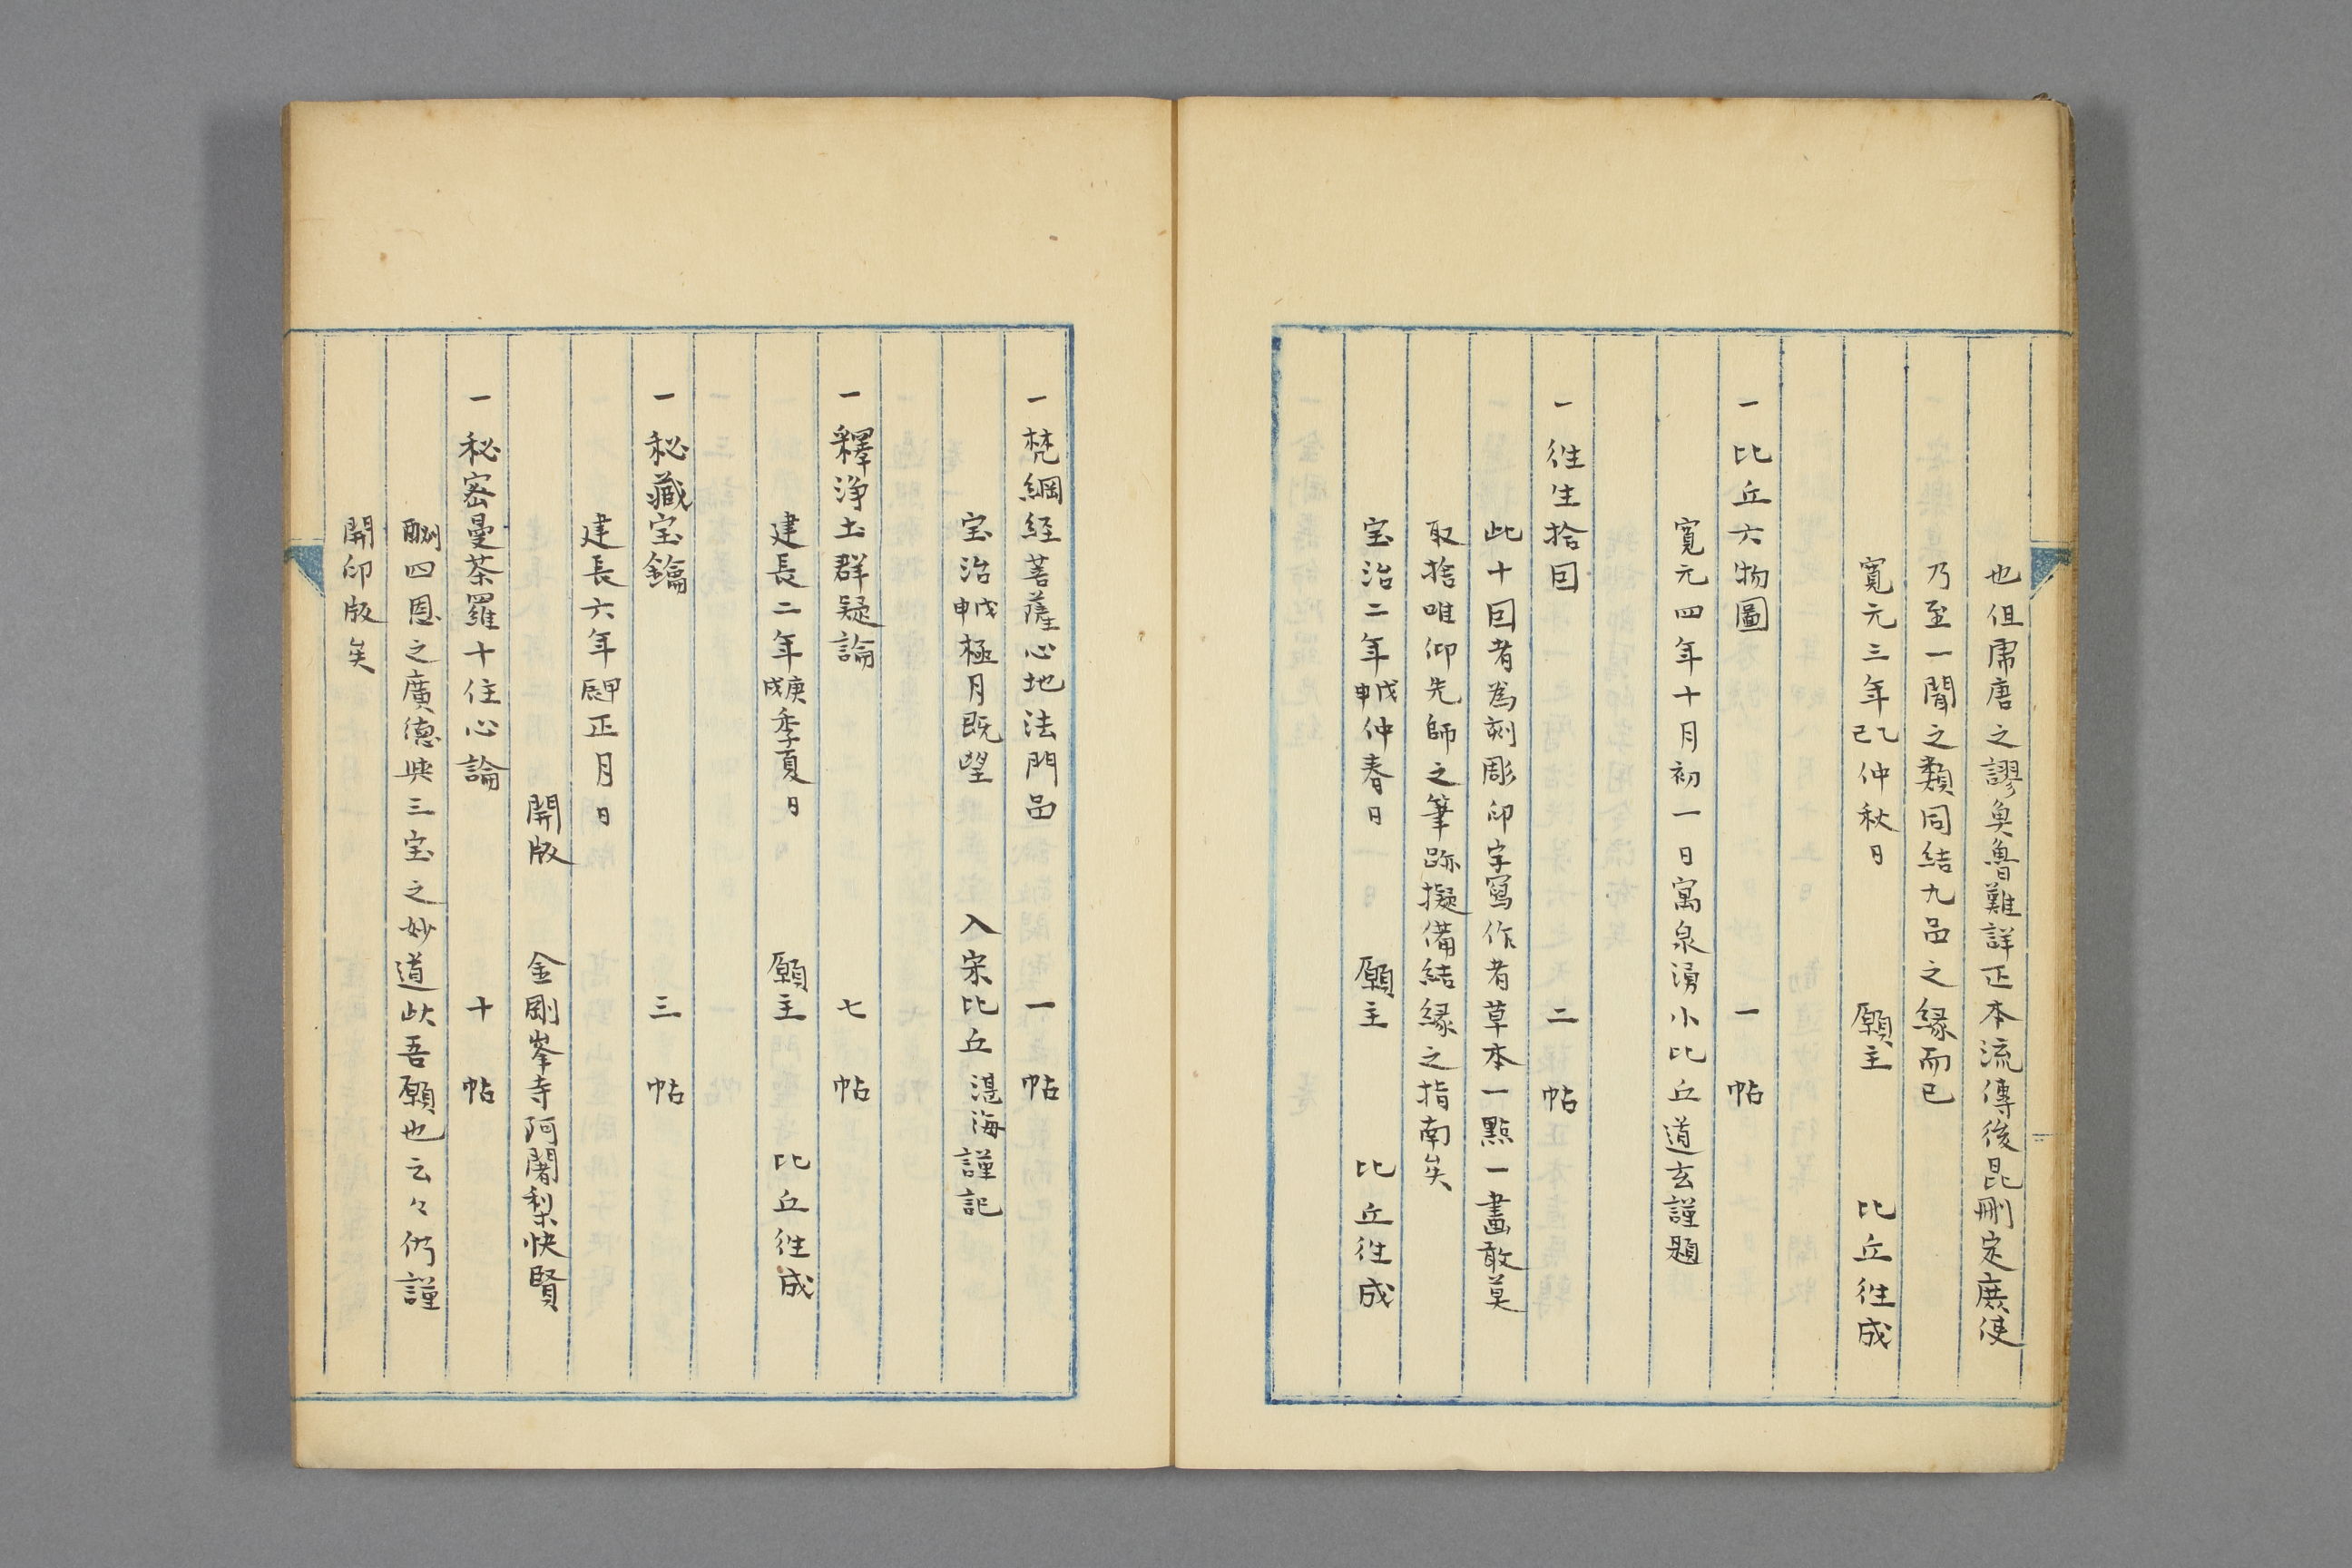 也但庸唐之謬魚魯難詳正本流傳後昆刪定庶使
乃至一聞之類同結九品之縁而已
寛元三年乙巳仲秋日 願主 比丘往成
一 比丘六物圖 一帖
寛元四年十月初一日寓泉涌小比丘道玄謹題
一 往生拾因 二帖
此十因者為刻彫印字寫作者草本一點一畫敢莫
取捨唯仰先師之筆跡擬備結縁之指南矣
宝治二年戊申仲春日 願主 比丘往成
一 梵網経菩薩心地法門品 一帖
宝治戊申極月既望 入宋比丘湛海謹記
一 釋浄土群疑論 七帖
建長二年庚戌季夏日 願主 比丘往成
一 秘藏宝鑰 三帖
建長六年甲辰正月日
開版 金剛峯寺阿闍梨快賢
一 秘密曼荼羅十住心論 十帖
酬四恩之廣德興三宝之妙道此吾願也云々仍謹
開印版矣